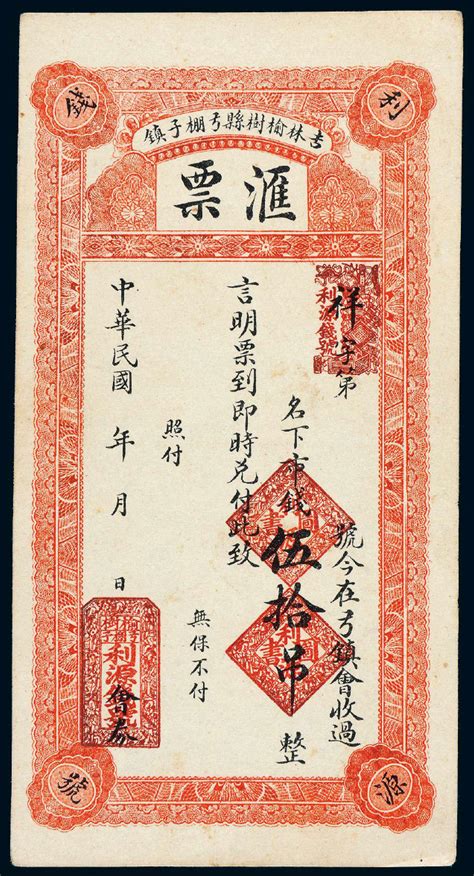 利
源
錢
號
吉林榆樹縣弓棚子鎮
滙票
利源錢號
祥字第 號今在弓鎮會收過
名下市錢伍拾吊整
言明票到即時兌付此致
照付 無保不付
中華民國 年 月 日
利源